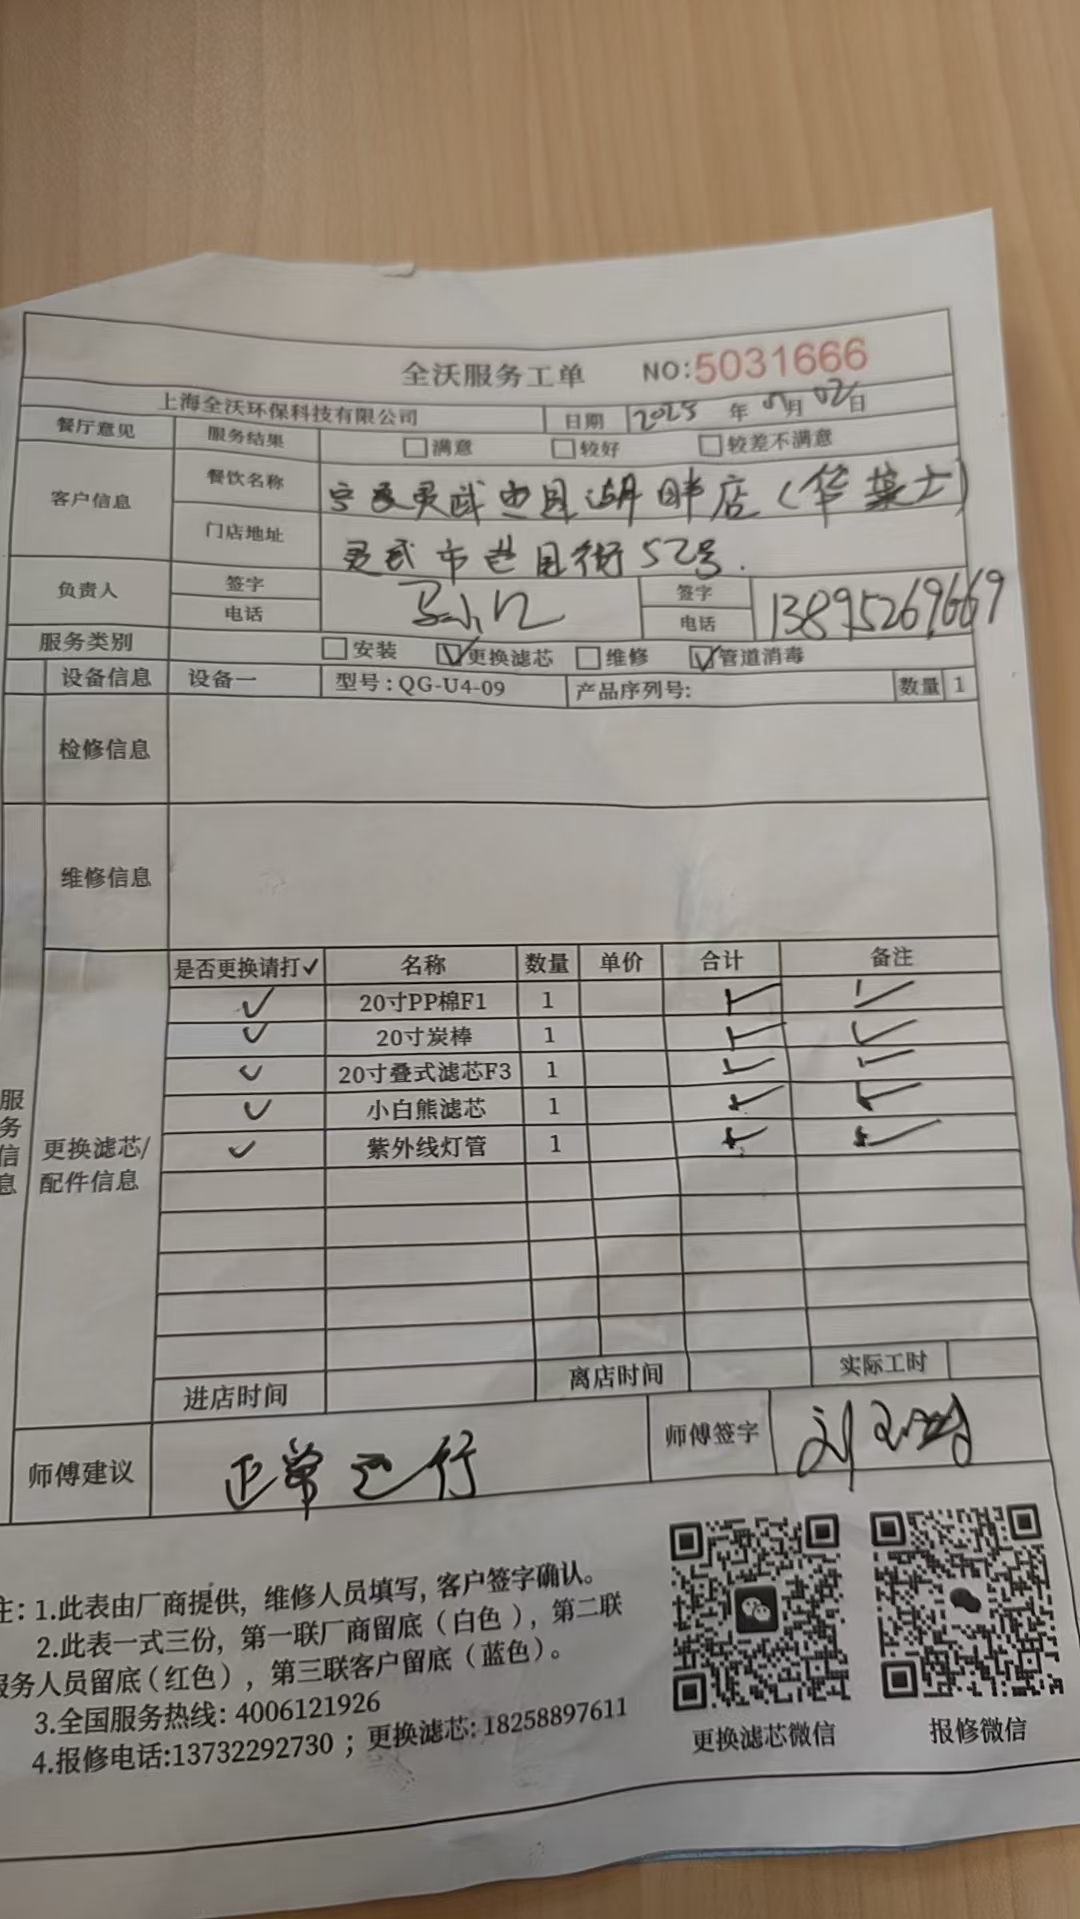 全沃服务工单 NO:5031666
上海全沃环保科技有限公司 日期 2025 年 月 02日
餐厅意见 服务结果 满意 较好 较差不满意
客户信息 餐饮名称 宁夏灵武 湖畔店(华莱士)
门店地址 灵武市 街52号.
负责人 签字 签字
电话 电话 13895269669
服务类别 安装 ✓更换滤芯 维修 ✓管道消毒
设备信息 设备一 型号:QG-U4-09 产品序列号: 数量 1
检修信息
维修信息
服务信息
更换滤芯/配件信息
是否更换请打✓ 名称 数量 单价 合计 备注
✓ 20寸PP棉F1 1
✓ 20寸炭棒 1
✓ 20寸叠式滤芯F3 1
✓ 小白熊滤芯 1
✓ 紫外线灯管 1
进店时间 离店时间 实际工时
师傅建议 正常运行 师傅签字 刘
注:1.此表由厂商提供,维修人员填写,客户签字确认。
2.此表一式三份,第一联厂商留底(白色),第二联
服务人员留底(红色),第三联客户留底(蓝色)。
3.全国服务热线:4006121926
4.报修电话:13732292730;更换滤芯:18258897611
更换滤芯微信 报修微信